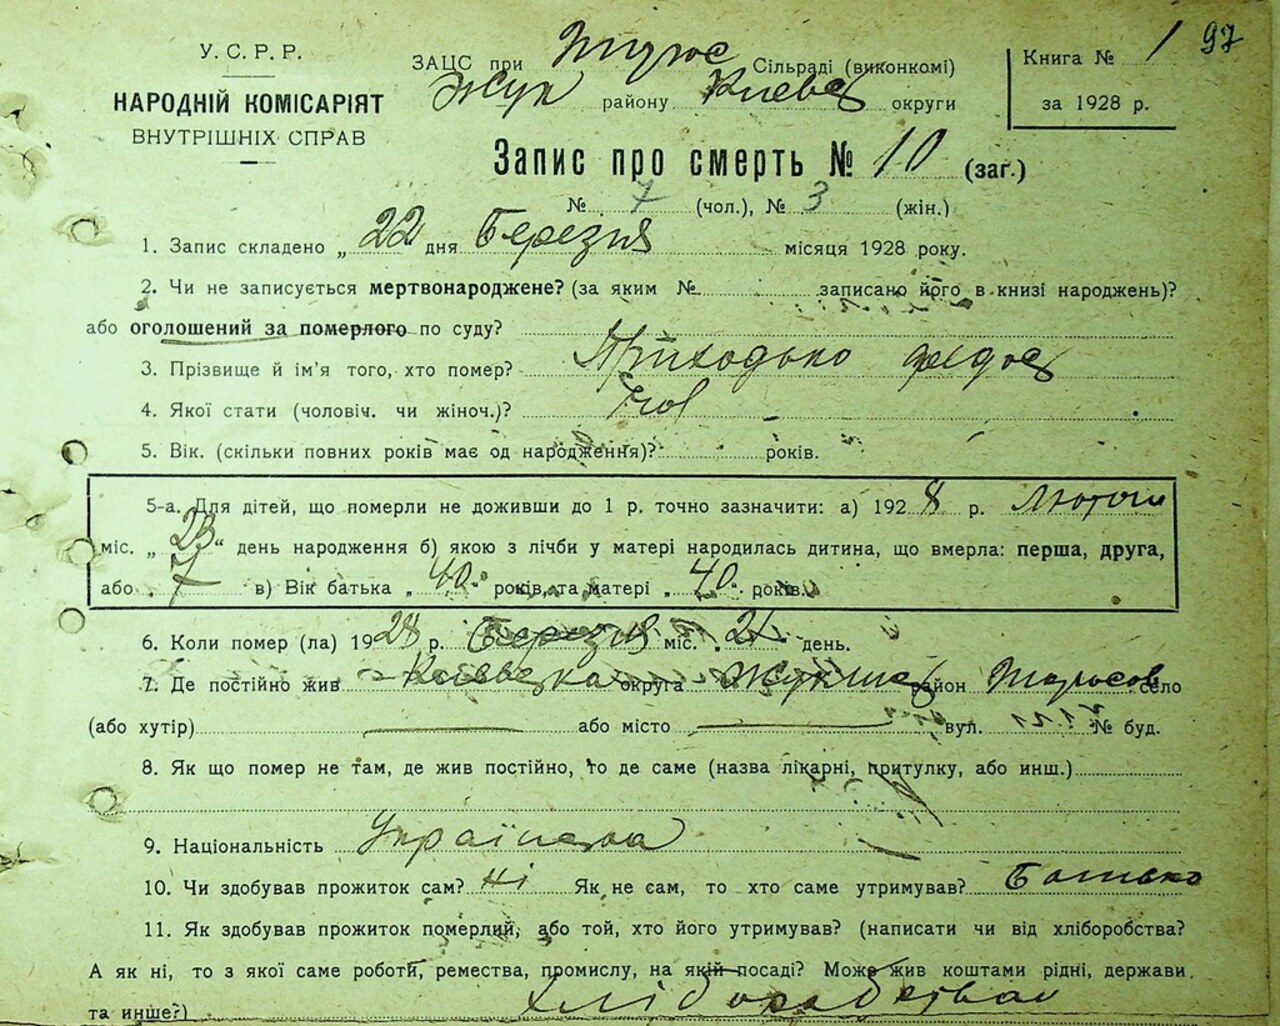 97
У.С.Р.Р.
НАРОДНІЙ КОМІСАРІЯТ
ВНУТРІШНІХ СПРАВ
ЗАЦС при Сільраді (виконкомі)
Жук району Киевс округи
Книга № 1
за 1928 р.
Запис про смерть № 10 (заг.)
№ 7 (чол.), № 3 (жін.)
1. Запис складено „ 22 дня Березня місяця 1928 року.
2. Чи не записується мертвонароджене? (за яким № записано його в книзі народжень)?
або оголошений за померлого по суду?
3. Прізвище й ім'я того, хто помер? Приходько Федос
4. Якої стати (чоловіч. чи жіноч.)? Чол
5. Вік. (скільки повних років має од народження)? років.
5-а. Для дітей, що померли не доживши до 1 р. точно зазначити: а) 1928 р. Лютого
міс. „ 23 “ день народження б) якою з лічби у матері народилась дитина, що вмерла: перша, друга,
або „ 7 в) Вік батька „ 40 років, та матері „ 40 років.
6. Коли помер (ла) 1928 р. Березня міс. „ 21 день.
7. Де постійно жив Київська округа район село
(або хутір) або місто вул. № буд.
8. Як що помер не там, де жив постійно, то де саме (назва лікарні, притулку, або инш.)
9. Національність Українська
10. Чи здобував прожиток сам? Ні Як не сам, то хто саме утримував? Батько
11. Як здобував прожиток померлий, або той, хто його утримував? (написати чи від хліборобства?
А як ні, то з якої саме роботи, ремества, промислу, на якій посаді? Може жив коштами рідні, держави
та инше?)